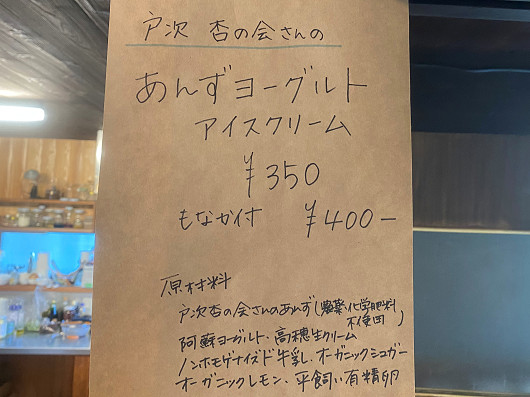 戸次 杏の会さんの
あんずヨーグルト
アイスクリーム
¥350
もなか付 ¥400-
原材料
戸次杏の会さんのあんず(農薬・化学肥料
不使用)
阿蘇ヨーグルト、高穂生クリーム
ノンホモゲナイズド牛乳、オーガニックシュガー
オーガニックレモン、平飼い有精卵